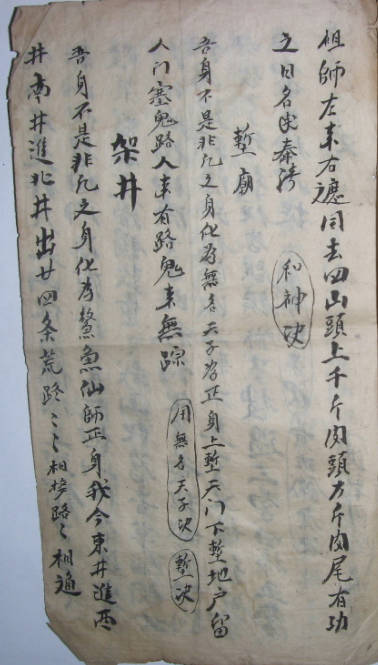 祖師左束右遮同去四山頭上千斤肉頭万斤肉尾有功
之日名傳泰清
和神决
塹廟
吾身不是非凡之身化為無名天子為正身上塹天门下塹地户留
人门塞鬼路人来有路鬼来無踪
用無名天子决
塹决
架井
吾身不是非凡之身化为鰲魚仙師正身我今東井進西
井南井進北井出廿四条荒路〻〻相接路〻相通